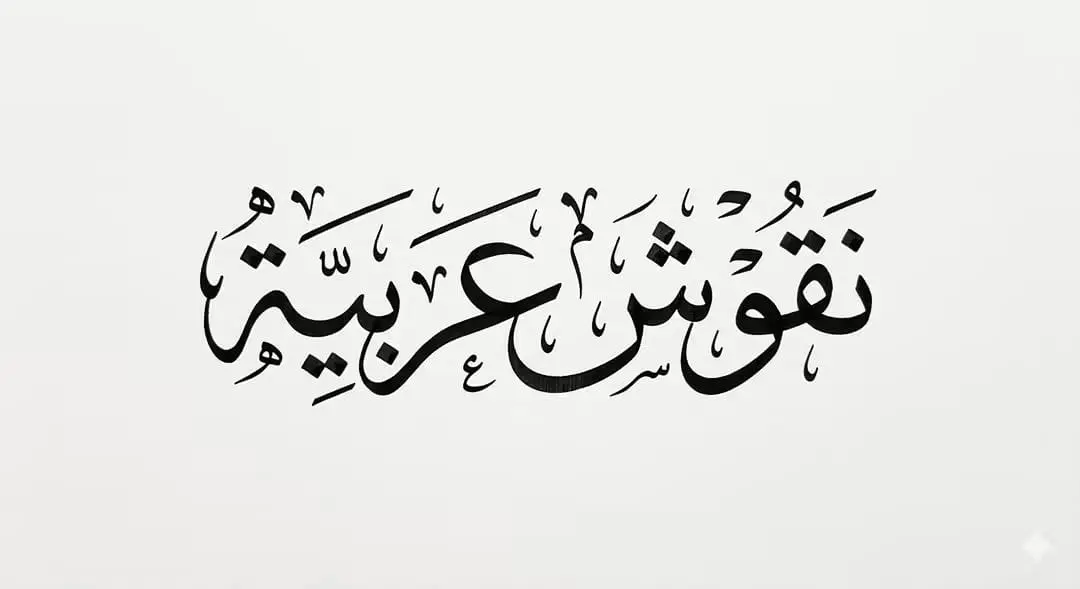 نَقُوْش عَرَبِيَّةُ